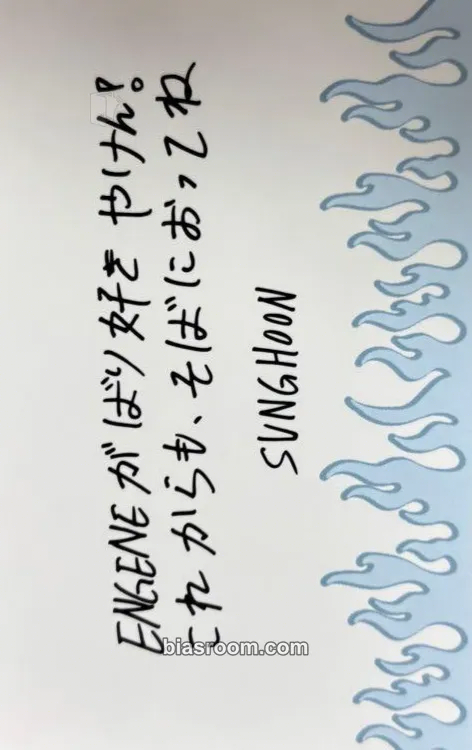 ENGENEがばり好きやけん!
これからも、そばにおってね
SUNGHOON
biasroom.com